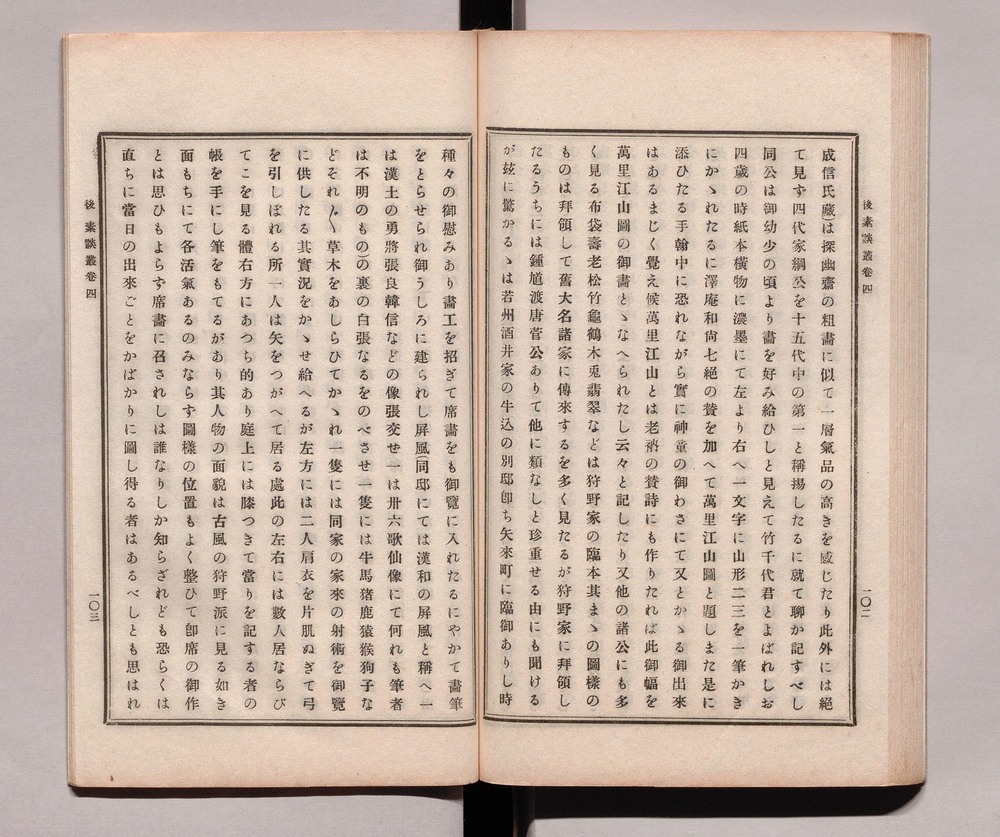 後素談叢卷四
一〇二
成信氏藏)は探幽齋の粗畫に似て一層氣品の高きを感じたり此外には絕
て見す四代家綱公を十五代中の第一と稱揚したるに就て聊か記すべし
同公は御幼少の頃より畫を好み給ひしと見えて竹千代君とよばれしお
四歲の時紙本橫物に濃墨にて左より右へ一文字に山形二三を一筆かき
にかゝれたるに澤庵和尙七絕の贊を加へて萬里江山圖と題しまた是に
添ひたる手翰中に恐れながら實に神童の御わさにて又とかゝる御出來
はあるまじく覺え候萬里江山とは老衲の贊詩にも作りたれば此御幅を
萬里江山圖の御畫とゝなへられたし云々と記したり又他の諸公にも多
く見る布袋壽老松竹龜鶴木兎翡翠などは狩野家の臨本其まゝの圖樣の
ものは拜領して舊大名諸家に傳來するを多く見たるが狩野家に拜領し
たるうちには鍾馗渡唐菅公ありて他に類なしと珍重せる由にも聞ける
が玆に驚かるゝは若州酒井家の牛込の別邸卽ち矢來町に臨御ありし時
種々の御慰みあり畫工を招ぎて席畫をも御覽に入れたるにやかて畫筆
をとらせられ御うしろに建られし屛風(同邸にては漢和の屛風と稱へ一
は漢土の勇將張良韓信などの像張交せ一は卅六歌仙像にて何れも筆者
は不明のもの)の裏の白張なるをのべさせ一隻には牛馬猪鹿猿猴狗子な
どそれ〳〵草木をあしらひてかゝれ一隻には同家の家來の射術を御覽
に供したる其實況をかゝせ給へるが左方には二人肩衣を片肌ぬぎて弓
を引しぼれる所一人は矢をつがへて居る處此の左右には數人居ならび
てこを見る體右方にあつち的あり庭上には膝つきて當りを記する者の
帳を手にし筆をもてるがあり其人物の面貌は古風の狩野派に見る如き
面もちにて各活氣あるのみならす圖樣の位置もよく整ひて卽席の御作
とは思ひもよらす席畫に召されしは誰なりしか知らざれども恐らくは
直ちに當日の出來ごとをかばかりに圖し得る者はあるべしとも思はれ
後素談叢卷四
一〇三